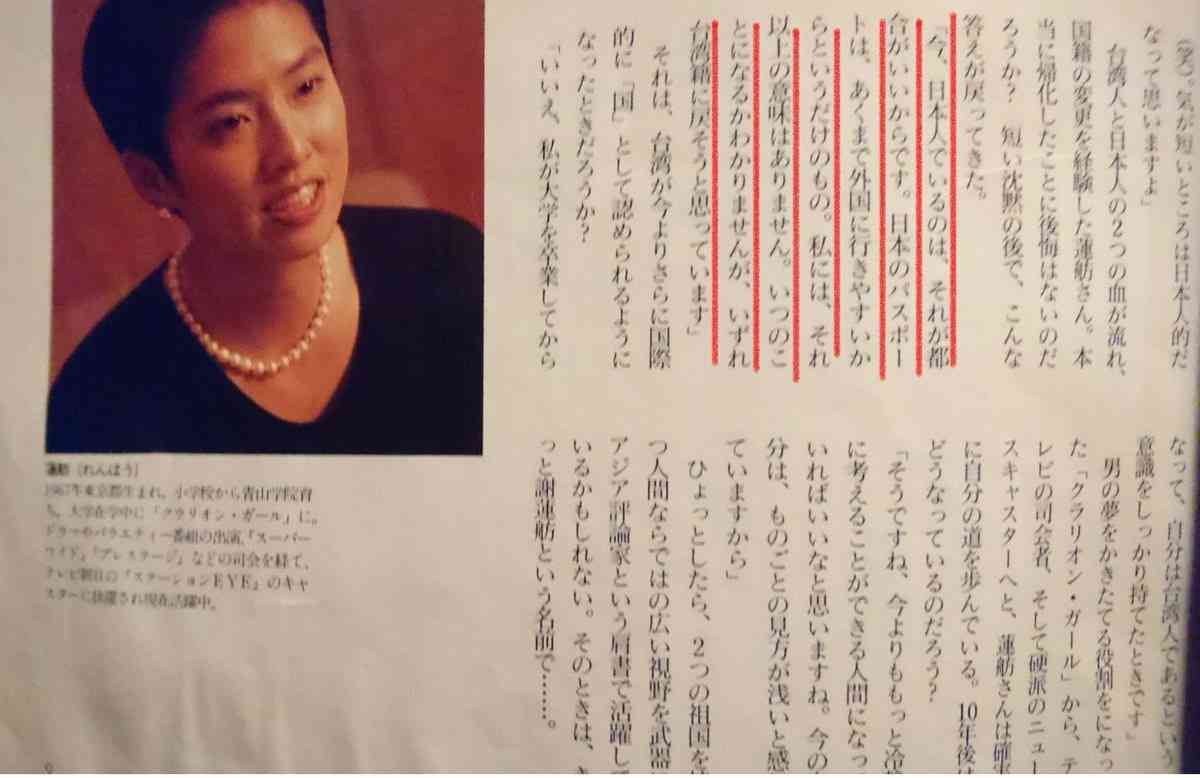 (笑)。気が短いところは日本人的だ
なって思いますよ」
台湾人と日本人の2つの血が流れ、
国籍の変更を経験した蓮舫さん。本
当に帰化したことに後悔はないのだ
ろうか? 短い沈黙の後で、こんな
答えが戻ってきた。
「今、日本人でいるのは、それが都
合がいいからです。日本のパスポー
トは、あくまで外国に行きやすいか
らというだけのもの。私には、それ
以上の意味はありません。いつのこ
とになるかわかりませんが、いずれ
台湾籍に戻そうと思っています」
それは、台湾が今よりさらに国際
的に「国」として認められるように
なったときだろうか?
「いいえ、私が大学を卒業してから
なって、自分は台湾人であるという
意識をしっかり持てたときです」
男の夢をかきたてる役割をになっ
た「クラリオン・ガール」から、テ
レビの司会者、そして硬派のニュー
スキャスターへと、蓮舫さんは確実
に自分の道を歩んでいる。10年後は
どうなっているのだろう?
「そうですね、今よりももっと冷静
に考えることができる人間になって
いればいいなと思いますね。今の
分は、ものごとの見方が浅いと感
ていますから」
ひょっとしたら、2つの祖国を
つ人間ならではの広い視野を武器に
アジア評論家という肩書で活躍して
いるかもしれない。そのときは、き
っと謝蓮舫という名前で……。
蓮舫(れんほう)
1967年東京都生まれ。小学校から青山学院育
ち。大学在学中に「クラリオン・ガール」に。
ドラマやバラエティー番組の出演、「スーパー
ワイド」「プレステージ」などの司会を経て、
テレビ朝日の『ステーションEYE』のキャ
スターに抜擢され現在活躍中。